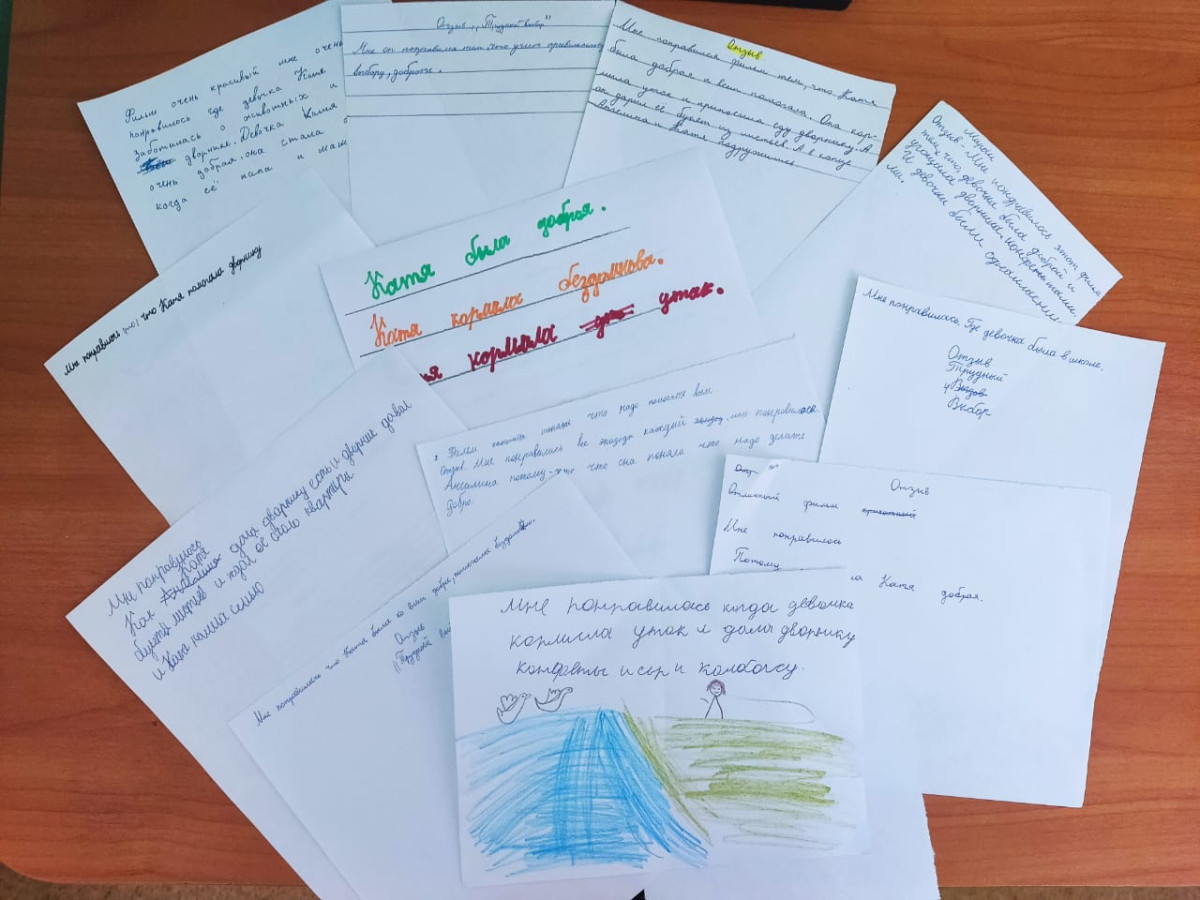 Фильм очень красивый мне очень
понравилось где девочка Катя
заботилась о животных и
дворнике. Девочка Катя
очень добрая. она стала
когда её папа и мам
Отзыв „Трудный выбор"
Мне он понравился тем, что учит правильному
выбору, доброте.
Отзыв
Мне понравился фильм тем, что Катя
была добрая и всем помогала. Она кор-
мила уток и приносила еду дворнику. А
он дарил ей букет из листьев. А в конце
Ангелина и Катя подружились
Отзыв - Мне пондравилось этот филм
тем, что, девочка была доброй и
угощала дворника, конфетами.
И девочки были
ми.
Мне понравилось что Катя помогала дворнику
Катя была добрая.
Катя кормила бездомкова.
я кормыла уток.
Мне понравилось. Где девочка была в школе.
Отзыв
Трудный
Выбор
Фильм что надо помогать всем
Отзыв Мне понравились все эпизоды каждый мне понравилась
Ангелина потому-что что она поняла что надо делать
добро.
Мне понравилось
Катя
Как дала дворнику есть и дворник давал
букет листьев и ждал ос свою квартиру
и Катя нашла семью
Отзыв
Отличный фильм
Мне понравилось
Потому а Катя добрая.
Мне понравилось что Катя была ко всем добра, помогала
Отзыв
Трудный вы
Мне понравилось когда девочка
кормила уток и дала дворнику
конфеты и сер и колбосу.